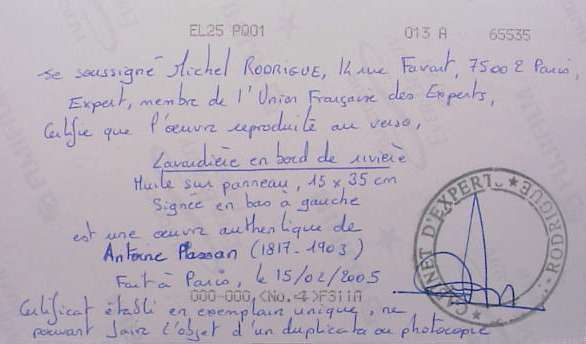 EL25 PQ01 013 A 65535
Je soussigné Michel RODRIGUE, 14 rue Favart, 75002 Paris,
Expert, membre de l'Union Française des Experts,
Certifie que l'œuvre reproduite au verso,
Lavandière en bord de rivière
Huile sur panneau, 15 x 35 cm
Signée en bas à gauche
est une œuvre authentique de
Antoine Plassan (1817-1903)
Fait à Paris, le 15/02/2005
000-000, <No. 4
Certificat établi en exemplaire unique, ne
pouvant faire l'objet d'un duplicata ou photocopie
CABINET D'EXPERT. ★ RODRIGUE ★